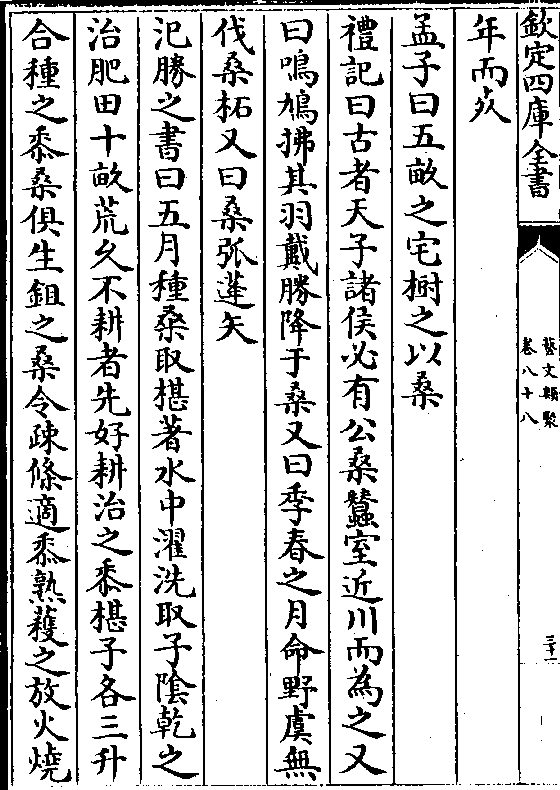 欽定四庫全書
藝文類聚
卷八十八
三十一
年而火
孟子曰五畝之宅樹之以桑
禮記曰古者天子諸侯必有公桑蠶室近川而為之又
曰鳴鳩拂其羽戴勝降于桑又曰季春之月命野虞無
伐桑柘又曰桑弧蓬矢
氾勝之書曰五月種桑取椹著水中濯洗取子陰乾之
治肥田十畝荒久不耕者先好耕治之黍椹子各三升
合種之黍桑俱生鉏之桑令疎條適黍熟穫之放火燒